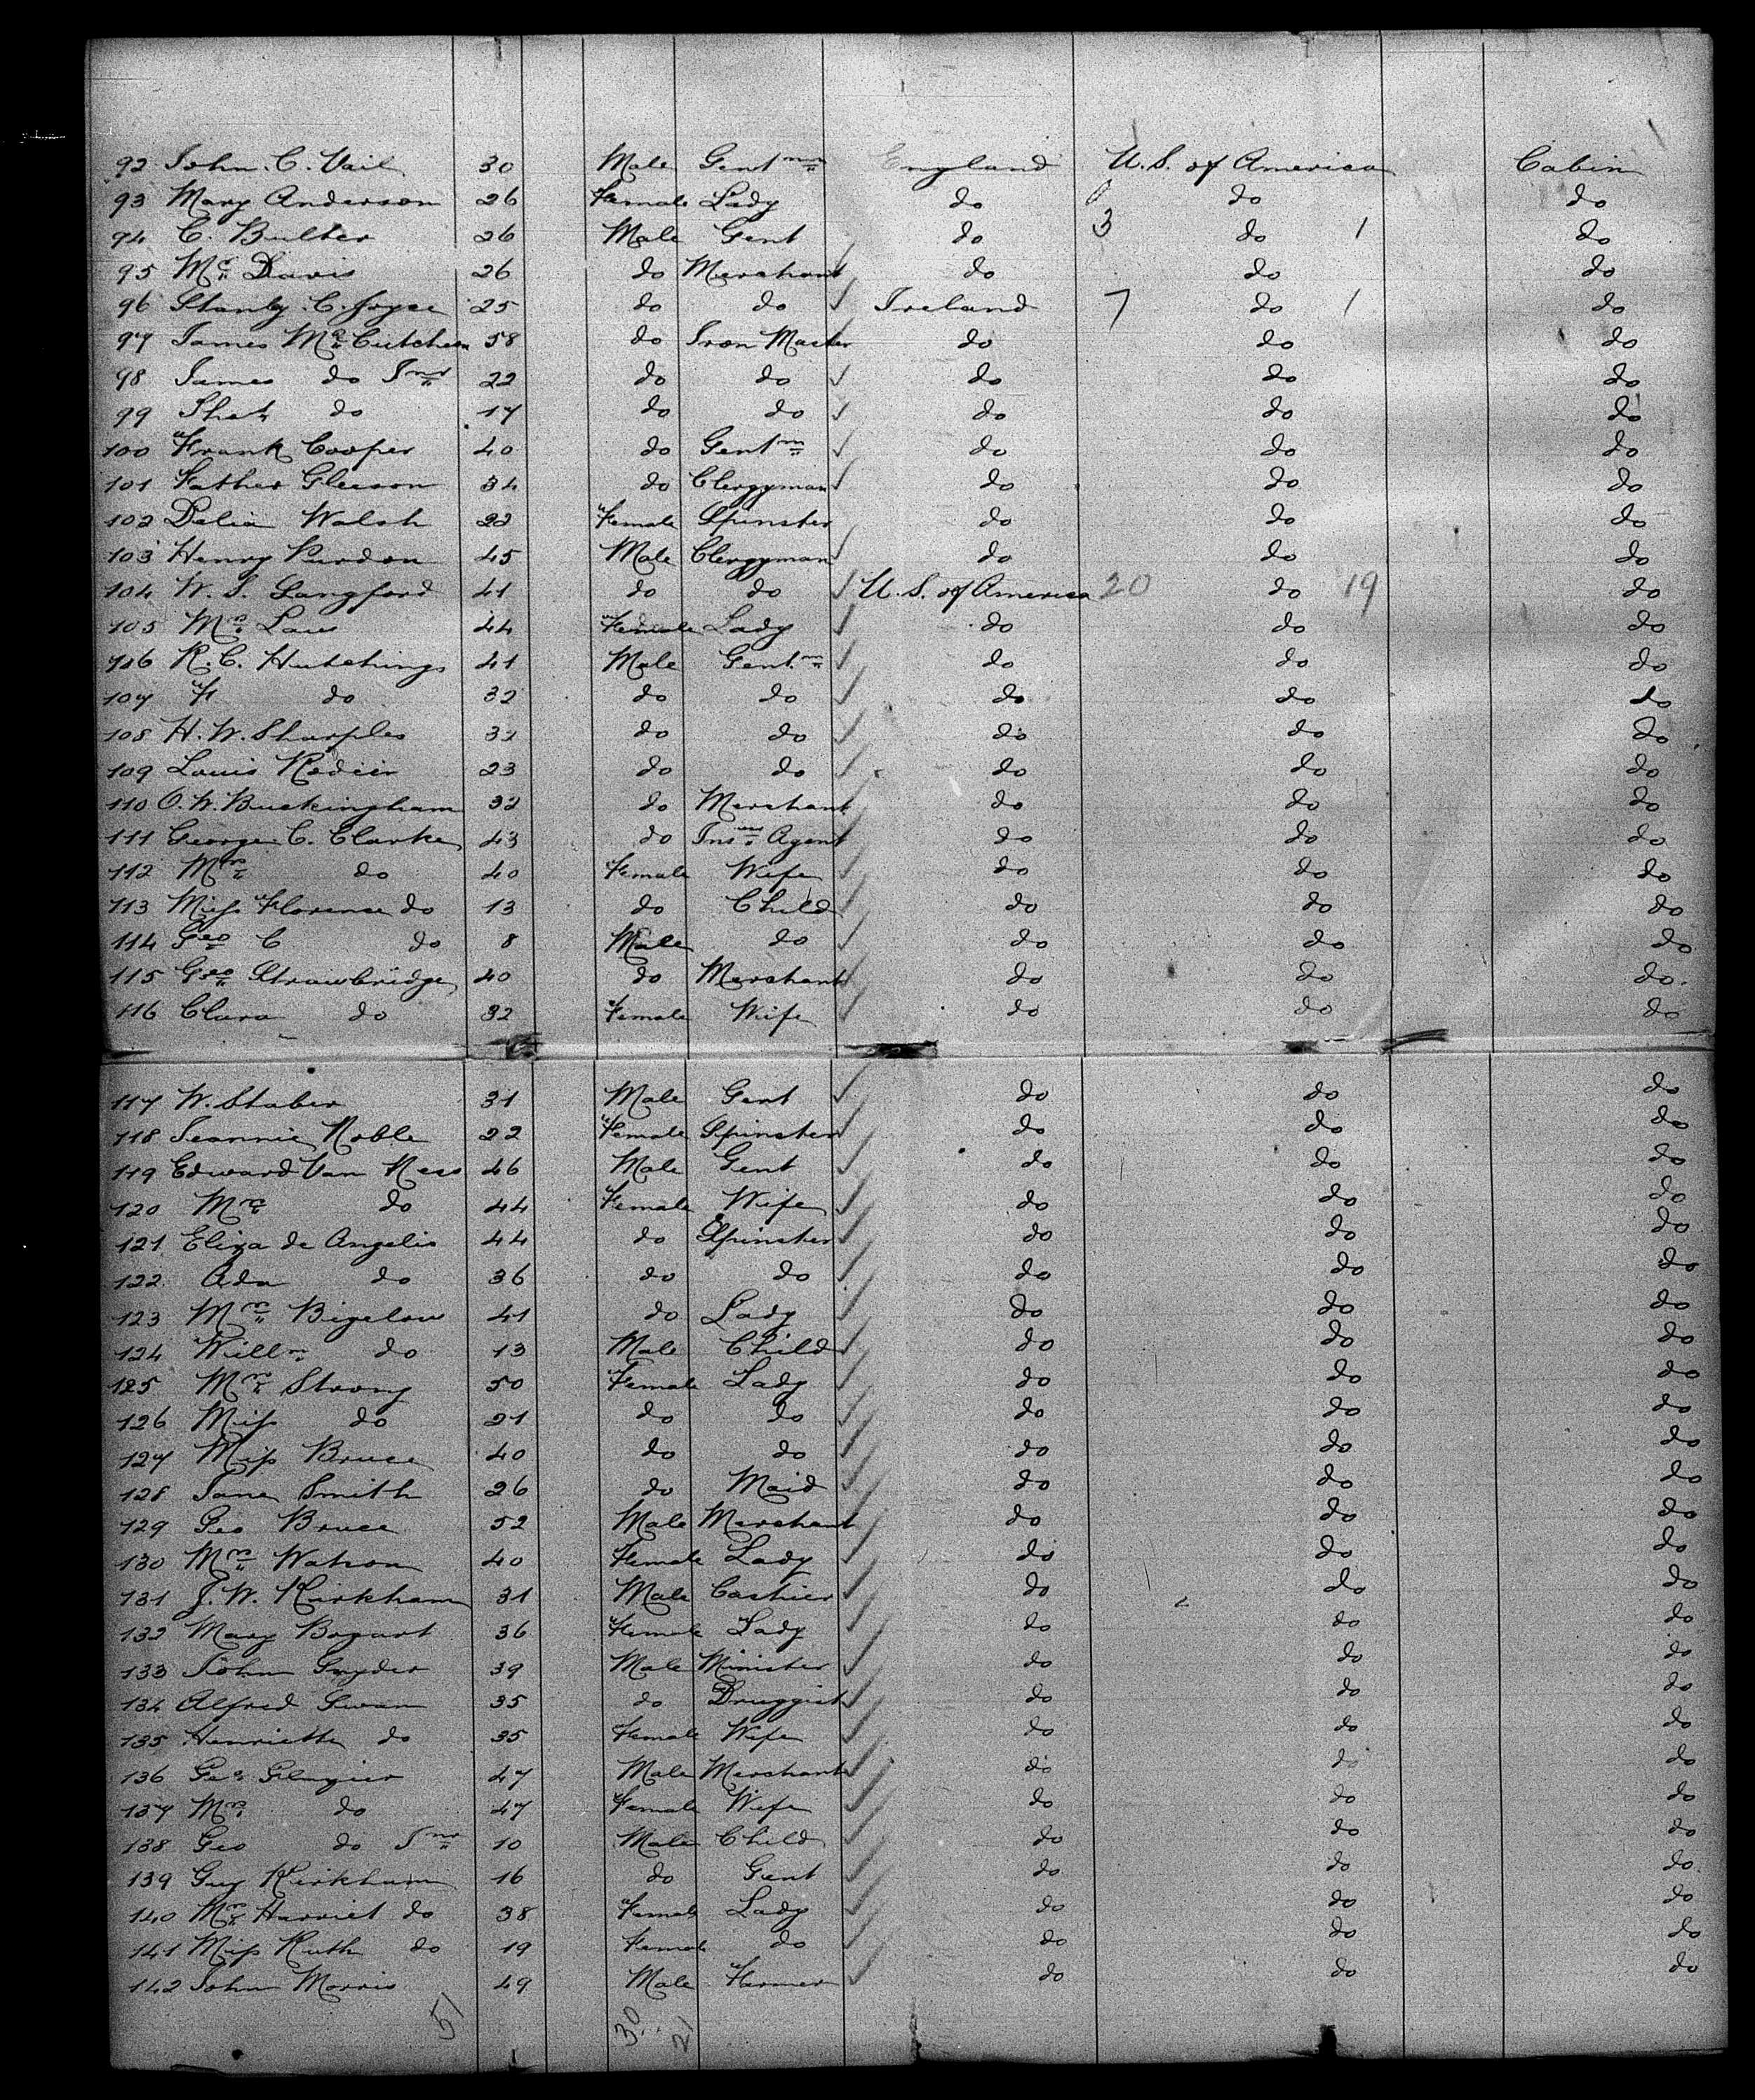 92 John. C. Vail 30 Male Gentmn England U.S. of America Cabin
93 Mary Anderson 26 Female Lady do do do
94 C. Butler 26 Male Gent do 3 do 1 do
95 Mr Davis 26 do Merchant do do do
96 Stanly. C. Joyce 25 do do Ireland 7 do 1 do
97 James McCutcheon 58 do Iron Master do do do
98 James do Jnr 22 do do do do do
99 do 17 do do do do do
100 Frank Cooper 40 do Gentm do do do
101 Father Gleeson 34 do Clergyman do do do
102 Delia Walsh 22 Female Spinster do do do
103 Henry Purdon 45 Male Clergyman do do do
104 W. S. Langford 41 do do U.S. of America 20 do 19 do
105 Mrs Law 44 Female Lady do do do
106 R. C. Hutchings 41 Male Gentm do do do
107 F do 32 do do do do do
108 H. W. Sharples 32 do do do do do
109 Louis Rodier 23 do do do do do
110 O. W. Buckingham 32 do Merchant do do do
111 George C. Clarke 43 do Insce Agent do do do
112 Mrs do 40 Female Wife do do do
113 Miss Florence do 13 do Child do do do
114 Geo C do 8 Male do do do do
115 Geo Strawbridge 40 do Merchant do do do.
116 Clara do 32 Female Wife do do do
117 W. Staber 31 Male Gent do do do
118 Jeannie Noble 22 Female Spinster do do do
119 Edward Van Ness 46 Male Gent do do do
120 Mrs do 44 Female Wife do do do
121 Eliza de Angelis 44 do Spinster do do do
122. Ada do 36 do do do do do
123 Mrs Bigelow 41 do Lady do do do
124 Willm do 13 Male Child do do do
125 Mrs Strong 50 Female Lady do do do
126 Miss do 21 do do do do do
127 Miss Bruce 40 do do do do do
128 Jane Smith 26 do Maid do do do
129 Geo Bruce 52 Male Merchant do do do
130 Mrs Watson 40 Female Lady do do do
131 J. W. Kirkham 31 Male Cashier do do do
132 Mary Bogart 36 Female Lady do do do
133 John Snyder 39 Male Minister do do do
134 Alfred Swan 35 do Druggist do do do
135 Henrietta do 35 Female Wife do do do
136 Geo 47 Male Merchant do do do
137 Mrs do 47 Female Wife do do do
138 Geo do Jnr 10 Male Child do do do
139 Guy Kirkham 16 do Gent do do do
140 Mrs Harriet do 38 Female Lady do do do
141 Miss Ruth do 19 Female do do do do
142 John Morris 49 Male Farmer do do do
51 30 21